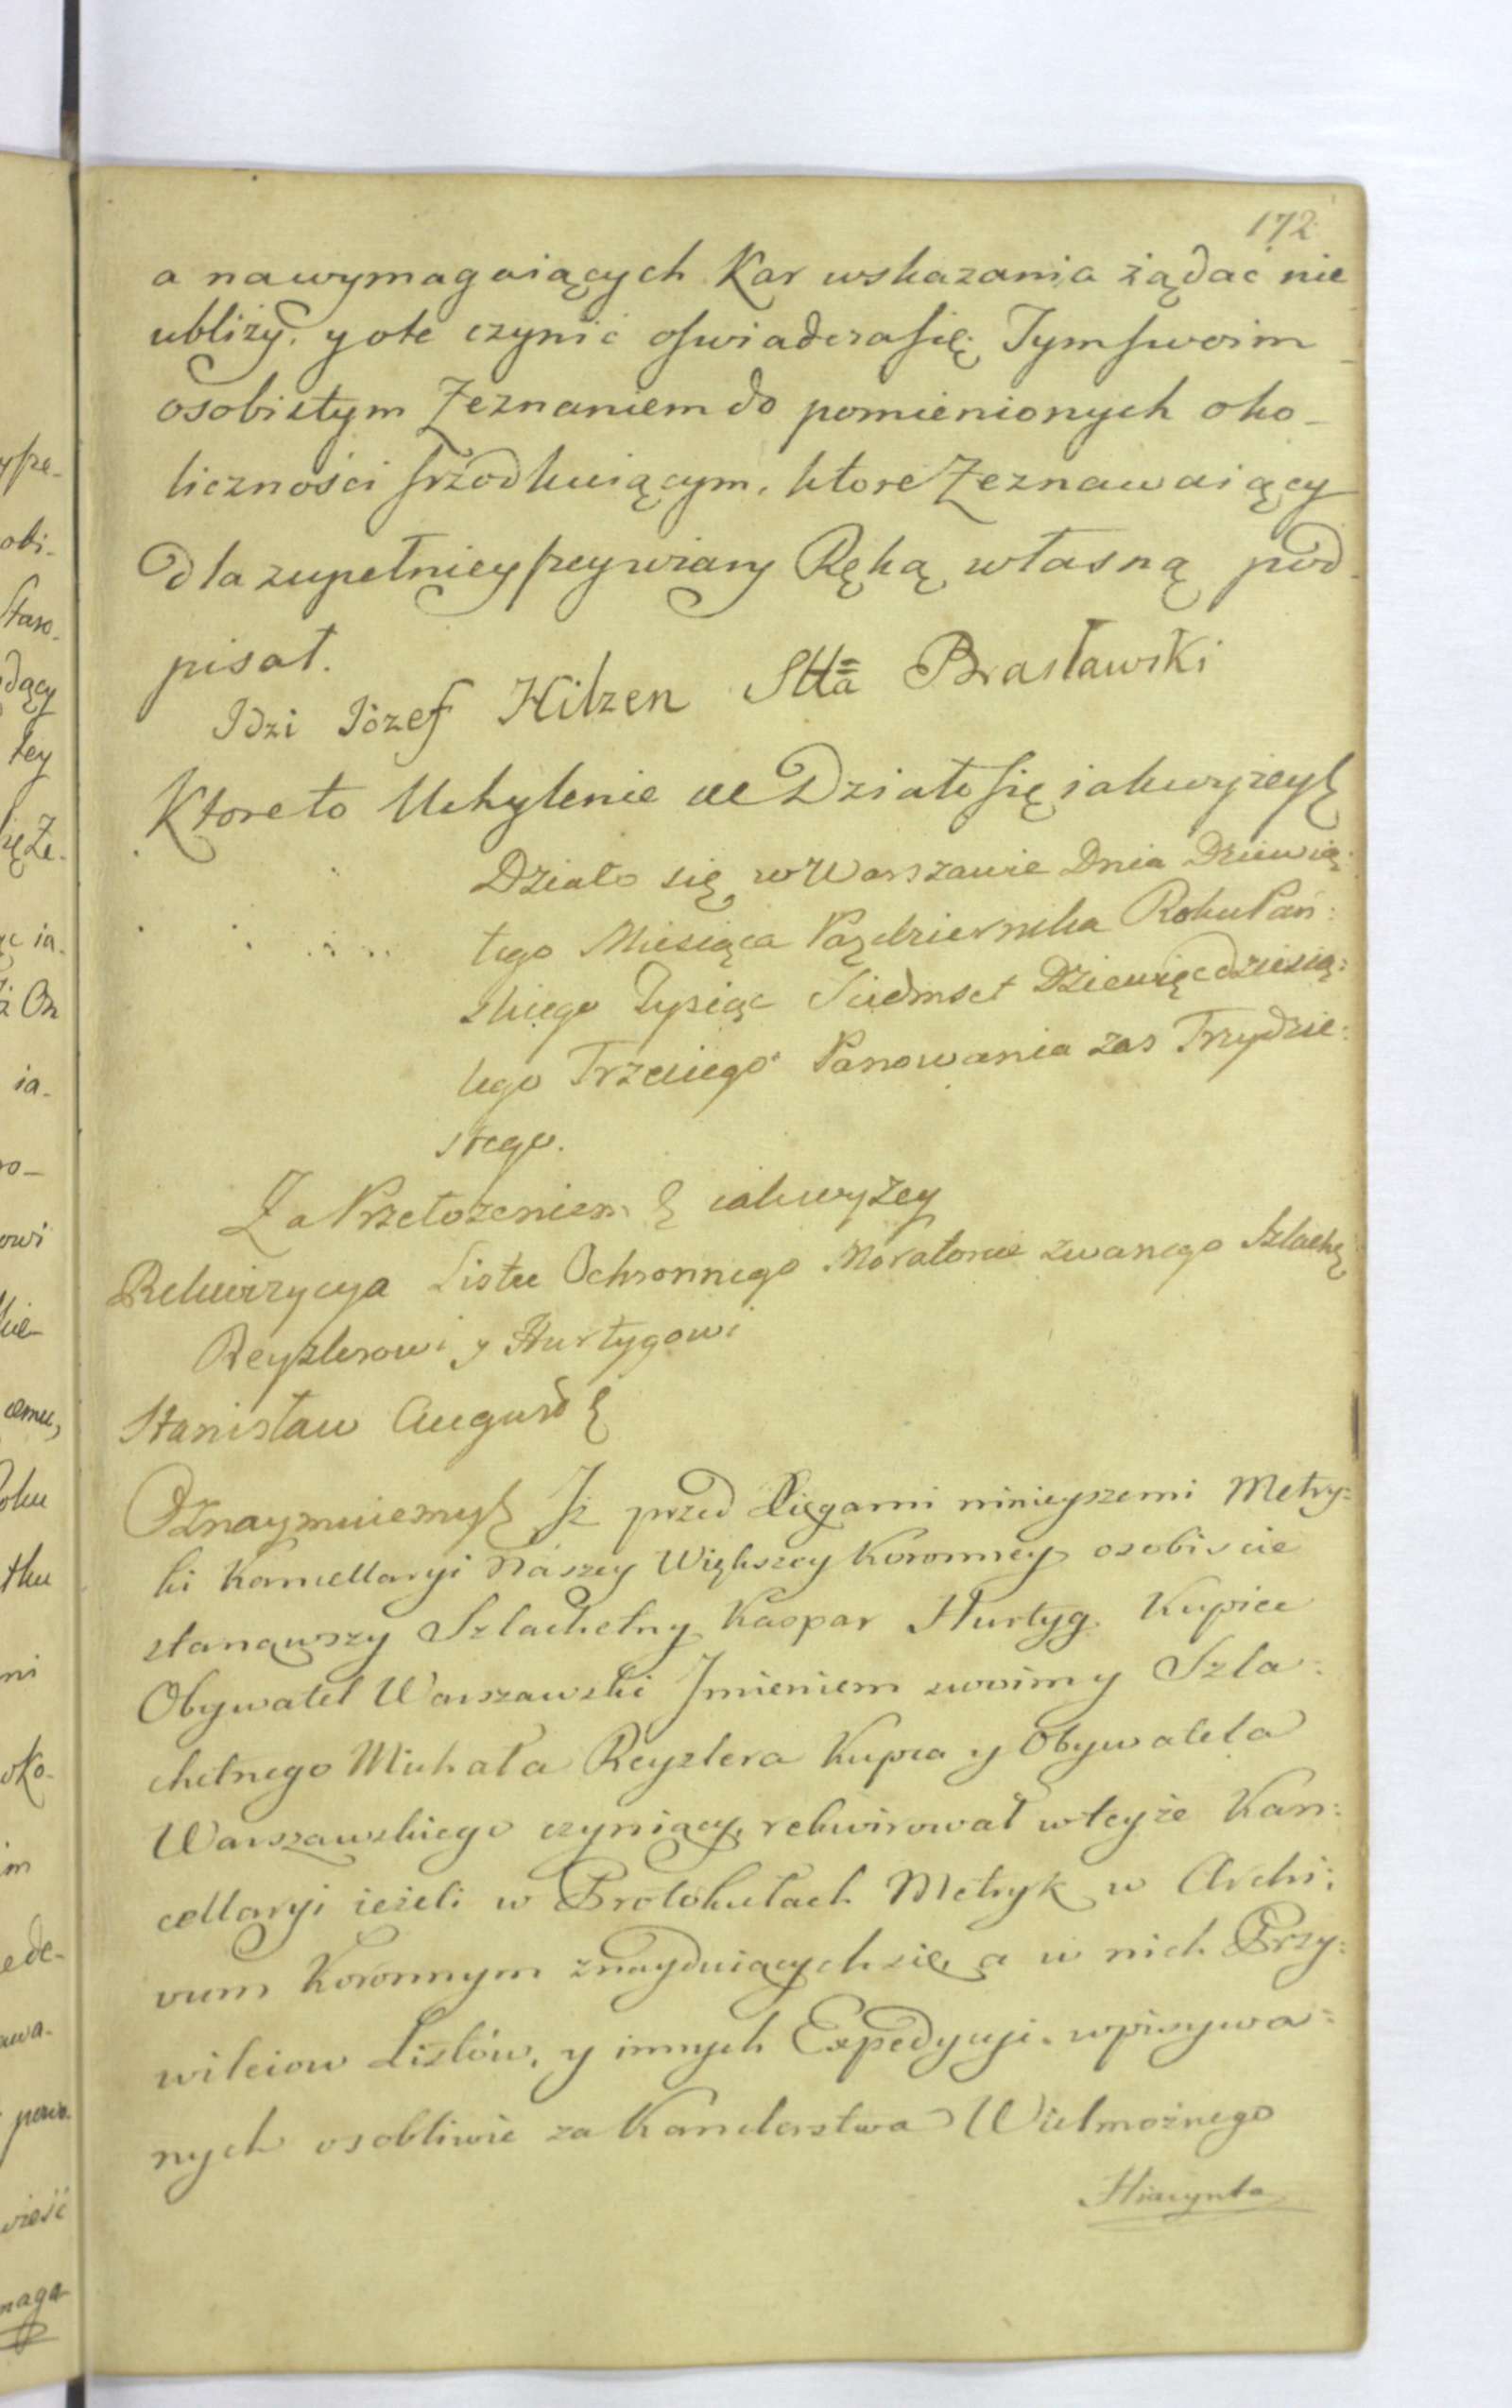 172
a nawymagaiących Kar wskazania żądać nie
ubliży. y ote czynić oswiadcza się. Tym swoim
osobistym Zeznaniem do pomienionych oko-
liczności srzodkuiącym, ktore Zeznawaiący
dla zupełnieyszey wiary Ręką własną pod-
pisał.
Idzi Józef Hilzen Stta Brasławski
Ktore to Uchylenie &c Działo się iakwyżey &
Działo się w Warszawie Dnia Dziewią:
tego Miesiąca Pazdziernika Roku Pań:
skiego Tysiąc Siedmset Dziewięcdziesią:
tego Trzeciego Panowania zas Trzydzie:
stego.
Za Przełożeniem & iakwyżey
Rekwizycya Listu Ochronnego Moratorii zwanego Szlachę
Reyzlerowi y Hurtygowi
Stanisław August &
Oznaymuiemy & Iż przed Xięgami ninieyszemi Metry:
ki Kancellaryi Naszey Większey Koronney osobiscie
stanąwszy Szlachetny Kaspar Hurtyg Kupiec
Obywatel Warszawski Imieniem swoim y Szla:
chetnego Michała Reyzlera Kupca y Obywatela
Warszawskiego czyniący, rekwirował w teyże Kan:
cellaryi ieżeli w Protokułach Metryk w Archi:
vum Koronnym znayduiących się, a w nich Przy:
wileiow Listów, y innych Expedycyi wpisywa:
nych osobliwie za Kanclerstwa Wielmożnego
Hiacynta